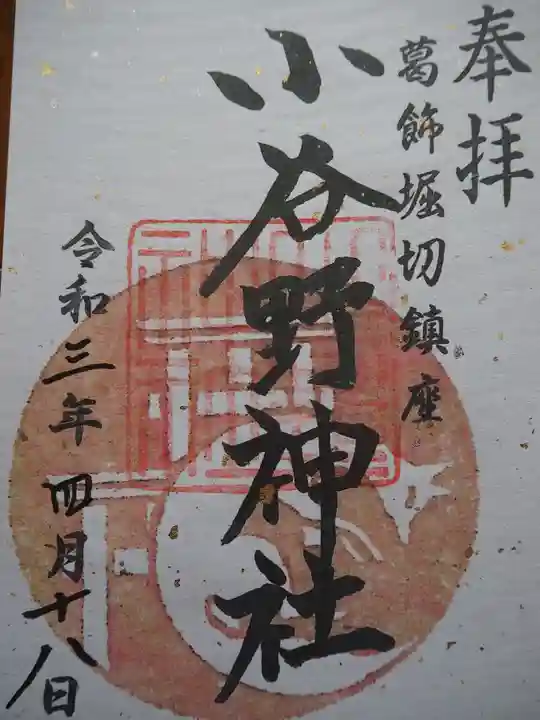 奉拝
葛飾堀切鎮座
小谷野神社
令和三年四月十八日